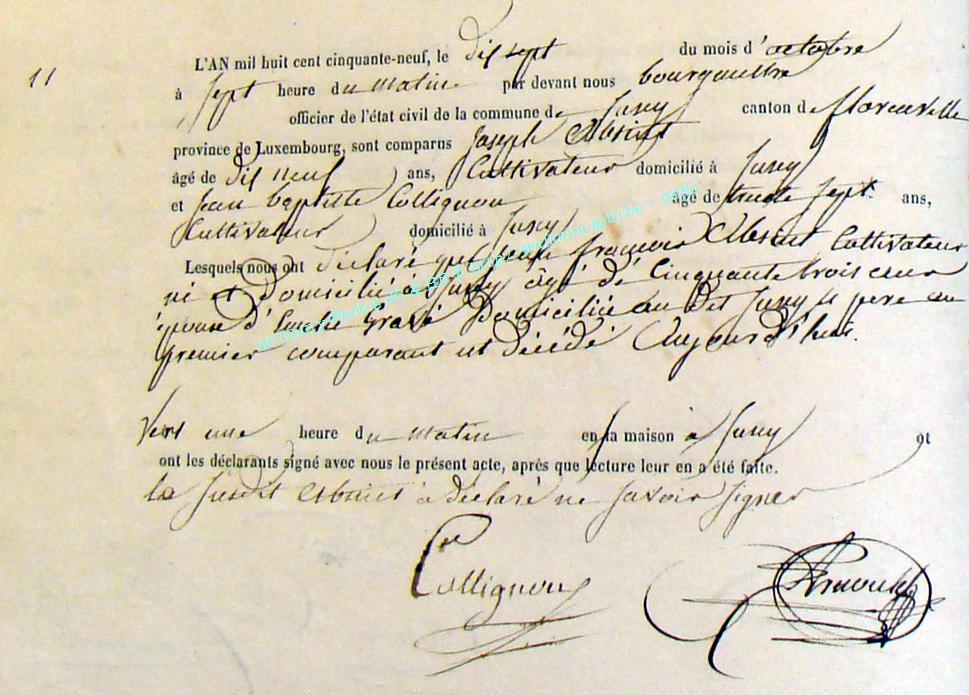 11
L'AN mil huit cent cinquante-neuf, le dix sept du mois d'octobre
à sept heure du matin par devant nous bourguestre
officier de l'état civil de la commune de canton de florenville
province de Luxembourg, sont comparus Joseph
âgé de dix neuf ans, Cultivateur domicilié à
et Jean baptiste Collignon âgé de trente sept ans,
Cultivateur domicilié à
Lesquels nous ont déclaré que françois Cultivateur
né et Domicilié à âgé de Cinquante trois ans
épouse d' Domiciliée au dit le père au
premier comparant est décédé Aujourd'hui.
Vers une heure du matin en sa maison à et
ont les déclarants signé avec nous le présent acte, après que lecture leur en a été faite.
le susdit à déclaré ne savoir signer
Collignon